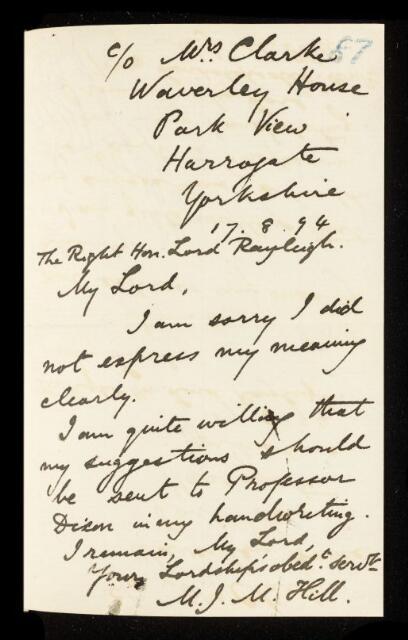 87
c/o Mrs Clarke
Waverley House
Park View
Harrogate
Yorkshire
17. 8. 94
The Right Hon. Lord Rayleigh.
My Lord,
I am sorry I did
not express my meaning
clearly.
I am quite willing that
my suggestions should
be sent to Professor
Dixon in my handwriting.
I remain, My Lord,
Your Lordship's obedt. servt
M. J. M. Hill.